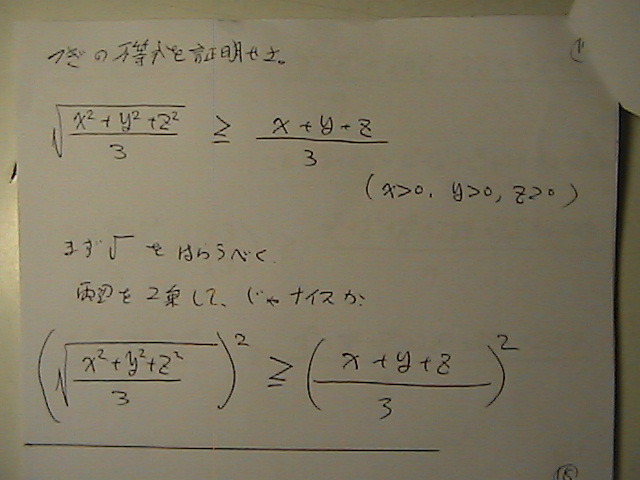 つぎの不等式を証明せよ。
√((x²+y²+z²)/3) ≥ (x+y+z)/3
(x>0, y>0, z>0)
まず√をはらうべく
両辺を2乗して、じゃナイスか
(√((x²+y²+z²)/3))² ≥ ((x+y+z)/3)²